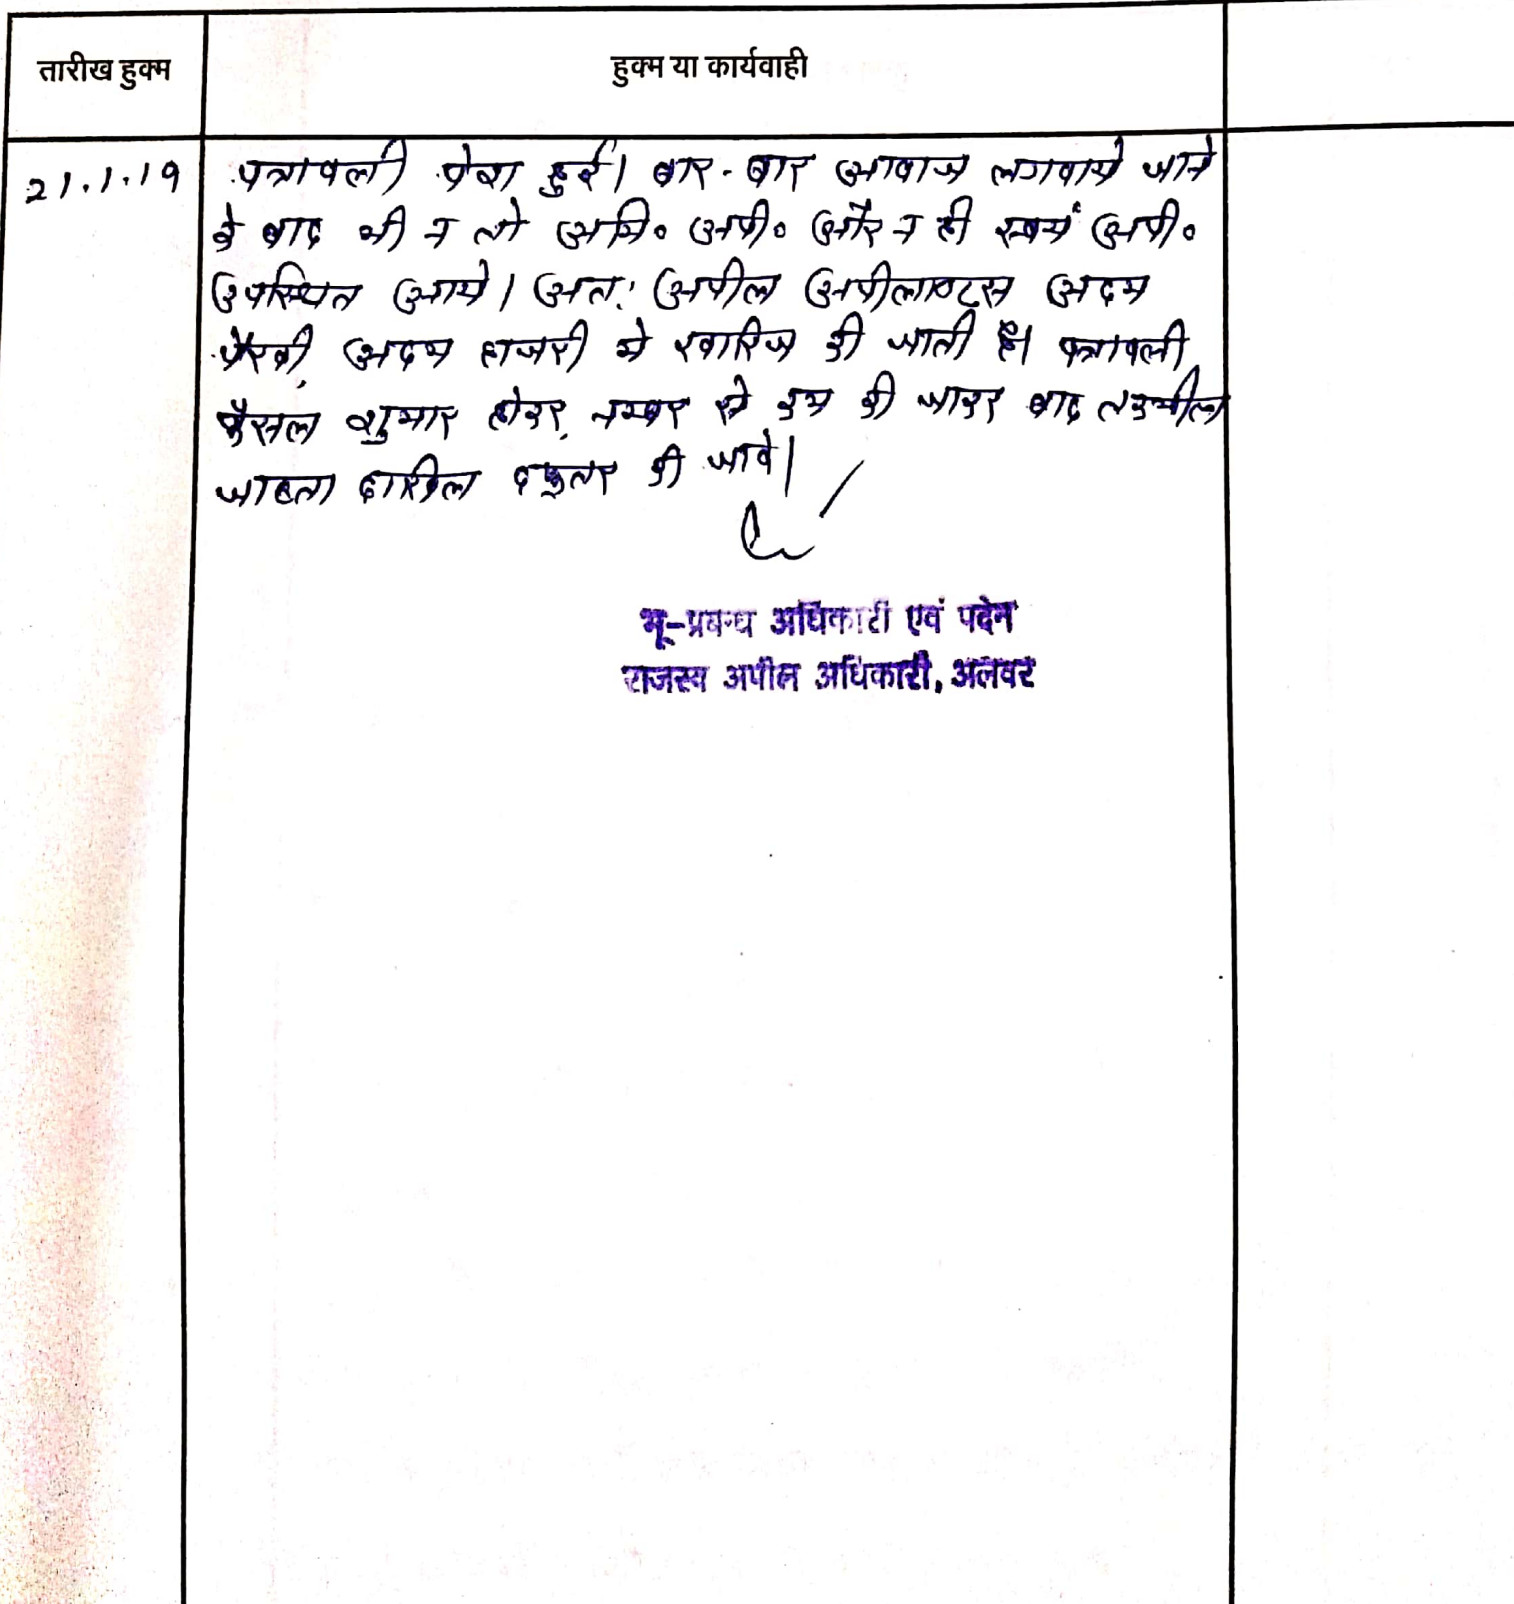 तारीख हुक्म
हुक्म या कार्यवाही
21.1.19
पत्रावली पेश हुई। बार-बार आवाज लगवाये जाने
के बाद भी न तो अभि॰ अपी॰ और न ही स्वयं अपी॰
उपस्थित आये। अतः अपील अपीलाण्ट्स अदम
पैरवी, अदम हाजरी मे खारिज की जाती है। पत्रावली
फैसल शुमार होकर, नम्बर से कम की जाकर बाद तकमील
जाब्ता दाखिल दफ्तर की जावे।
भू-प्रबन्ध अधिकारी एवं पदेन
राजस्व अपील अधिकारी, अलवर